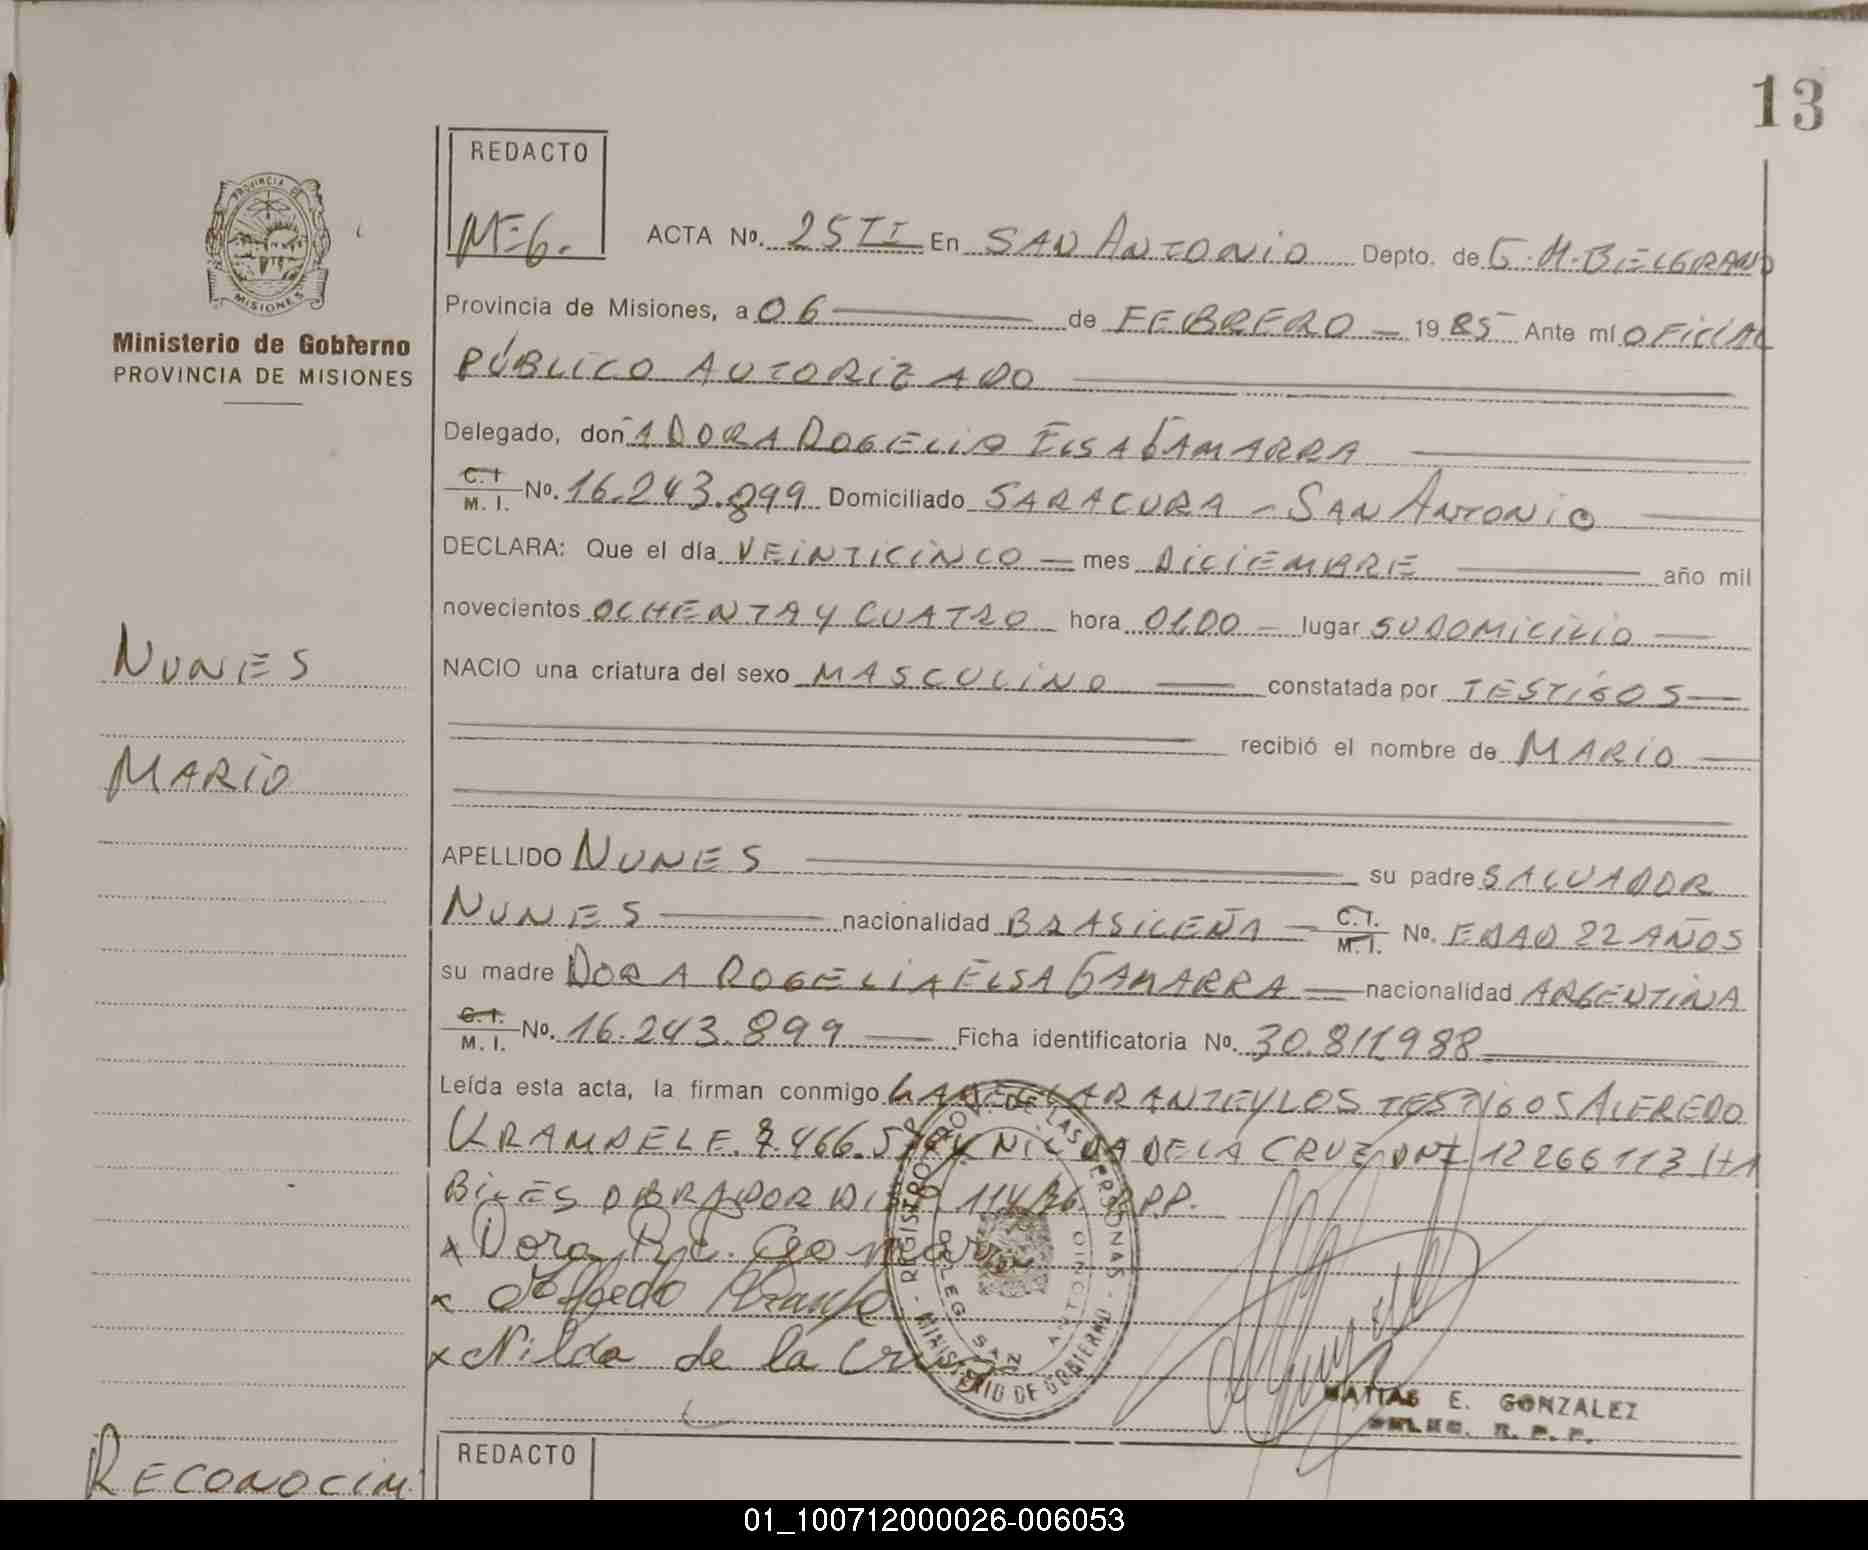 13
REDACTO
M-G.
ACTA No. 25 TI En SAN ANTONIO Depto. de G.M.BELGRANO
PROVINCIA DE
MISIONES
Ministerio de Gobierno
PROVINCIA DE MISIONES
Provincia de Misiones, a 06 de FEBRERO 1985 Ante mí OFICIAL
PÚBLICO AUTORIZADO
Delegado, doñA DORA ROGELIA ELSA GAMARRA
C.I. M. I. No. 16.243.899 Domiciliado SARACURA - SAN ANTONIO
DECLARA: Que el día VEINTICINCO mes DICIEMBRE año mil
novecientos OCHENTA Y CUATRO hora 01,00 lugar SU DOMICILIO
NUNES
NACIO una criatura del sexo MASCULINO constatada por TESTIGOS
recibió el nombre de MARIO
MARIO
APELLIDO NUNES su padre SALVADOR
NUNES nacionalidad BRASILEÑA C.I. M.I. No. EDAD 22 AÑOS
su madre DORA ROGELIA ELSA GAMARRA nacionalidad ARGENTINA
C.I. M. I. No. 16.243.899 Ficha identificatoria No. 30.811.988
Leída esta acta, la firman conmigo LA DECLARANTE Y LOS TESTIGOS ALFREDO
Y NILDA DE LA CRUZ DNI 12266113 HA
BILES OBRADOR R.P.P.
x Dora R. E. Gamarra
x Alfredo
x Nilda de la Cruz
REGISTRO PROV. DE LAS PERSONAS
DELEG. SAN ANTONIO
MINISTERIO DE GOBIERNO
MATIAS E. GONZALEZ
DELEG. R. P. P.
REDACTO
RECONOCIM.
01_100712000026-006053